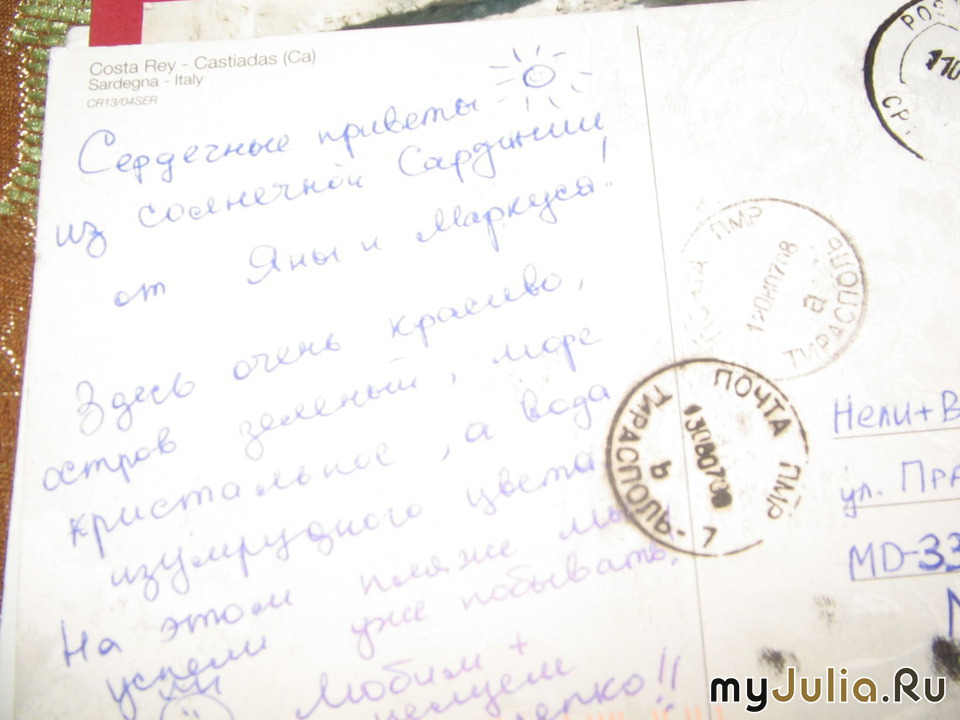 Costa Rey - Castiadas (Ca)
Sardegna - Italy
CR13/04SER
Сердечные приветы
из солнечной Сардинии
от Яны и Маркуса!
Здесь очень красиво,
остров зеленый, море
кристальное, а вода
изумрудного цвета
На этом пляже мы
успели уже побывать.
Любим +
целуем
крепко!!
ПМР
ТИРАСПОЛЬ
а
ПОЧТА ПМР
ТИРАСПОЛЬ
в
Нели+В
ул. Пра
MD-33
myJulia.Ru